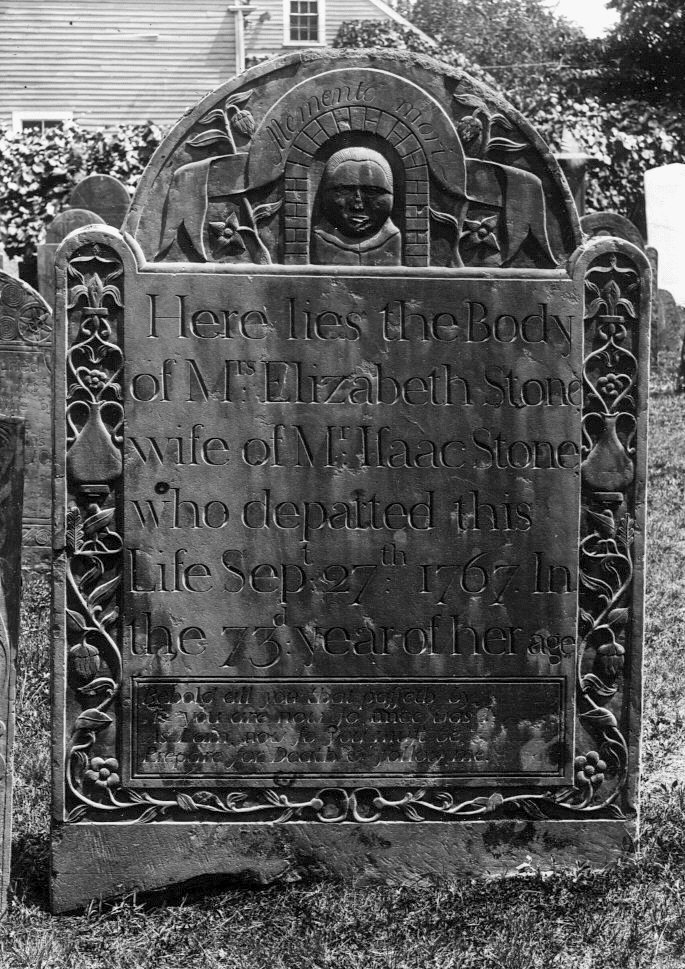 Memento mori
Here lies the Body
of Mrs: Elizabeth Stone
wife of Mr: Iſaac Stone
who depaɾted this
Life Sept: 27th: 1767. In
the 73d: year of her age
Behold all you that paſſeth by
As you are now ſo once was I
As I am now ſo You muſt be
Prepare for Death & follow me.